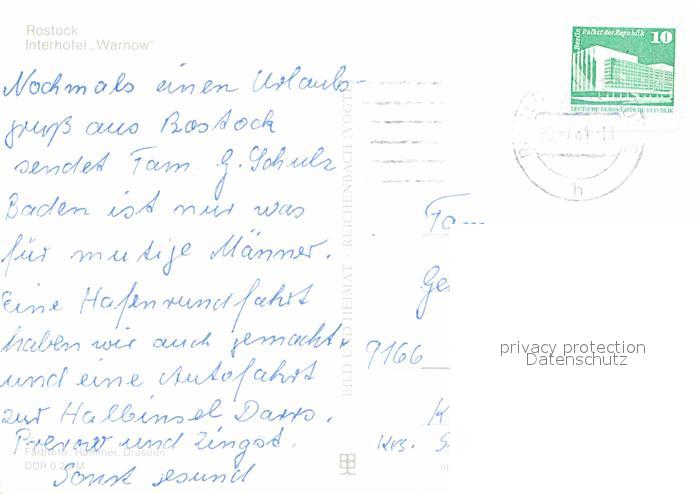 Rostock
Interhotel „Warnow"
Nochmals einen Urlaubs-
gruß aus Rostock
sendet Fam. G. Schulz
Baden ist nur was
für mutige Männer.
Eine Hafenrundfahrt
haben wir auch gemacht
und eine Autofahrt
zur Halbinsel Darss.
Prerow und Zingst.
Farbfoto: Hammer, Dresden
DDR 0.20 M
Sonst gesund
BILD UND HEIMAT · REICHENBACH (VOGTL
Berlin Palast der Republik
10
DEUTSCHE DEMOKRATISCHE REPUBLIK
h
Fa
Ge
9166
K
Krs. S
privacy protection
Datenschutz